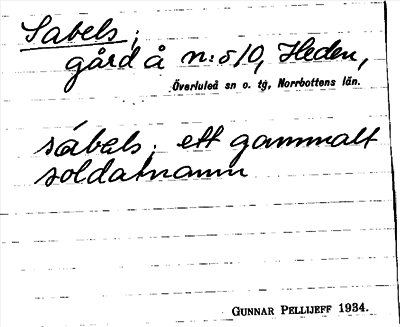 Sabels;
gård å n:o 10, Heden,
Överluleå sn o. tg, Norrbottens län.
sábels; ett gammalt
soldatnamn
GUNNAR PELLIJEFF 1934.